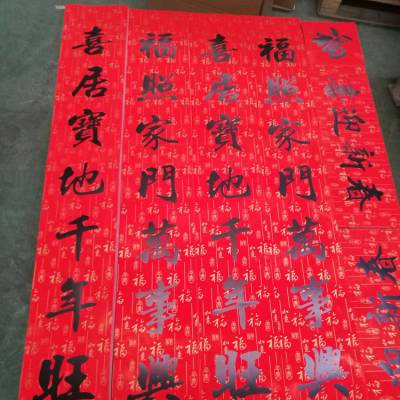 喜居寶地千年旺
福照家門萬事興
喜居寶地千年旺
福照家門萬事興
迎新春
新春